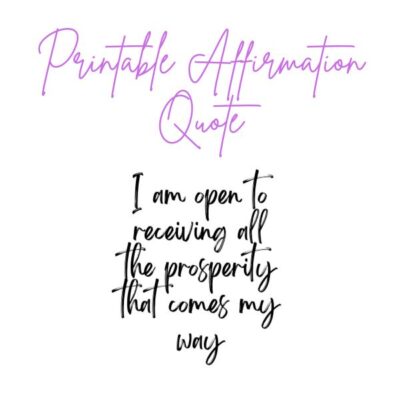 Printable Affirmation
Quote
I am open to
receiving all
the prosperity
that comes my
way